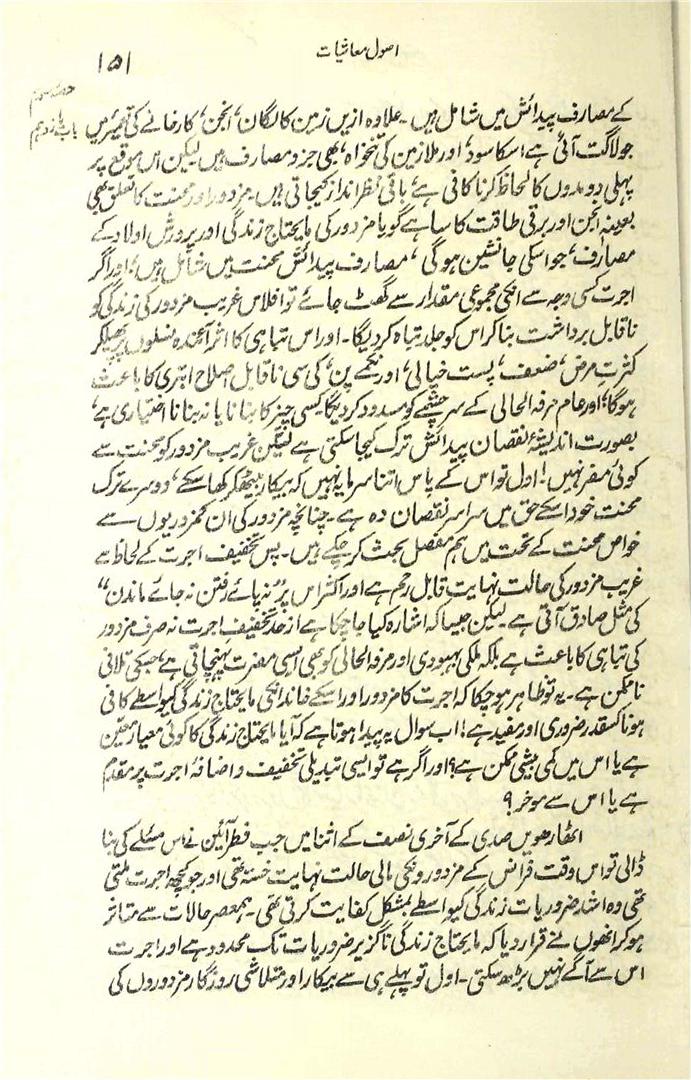 اصول معاشیات
۱۵۱
حصہ سوم
باب یازدہم
کے مصارف پیدائش میں شامل ہیں ۔ علاوہ ازیں زمین کا لگان، انجن، کارخانے کی تعمیر میں
جو لاگت آئی ہے اسکا سود، اور ملازمین کی تنخواہ، بھی جزو مصارف ہیں لیکن اس موقع پر
پہلی دو مدوں کا لحاظ کرنا کافی ہے، باقی نظر انداز کیجاتی ہیں۔ مزدور اور محنت کا تعلق بھی
بعینہ انجن اور برقی طاقت کا سا ہے گویا مزدور کی مایحتاج زندگی اور پرورش اولاد کے
مصارف، جو اسکی جانشین ہوگی، مصارف پیدائش محنت میں شامل ہیں، اور اگر
اجرت کسی وجہ سے انکی مجموعی مقدار سے گھٹ جائے تو افلاس غریب مزدور کی زندگی کو
ناقابل برداشت بنا کر اس کو جلد تباہ کر دیگا ۔ اور اس تباہی کا اثر آئندہ نسلوں پر پھیلکر
کثرت مرض، ضعف، پست خیالی، اور نکمے پن، کی سی ناقابل اصلاح ابتری کا باعث
ہوگا؛ اور عام مرفہ الحالی کے سر چشمے کو مسدود کر دیگا کسی چیز کا بنانا یا نہ بنانا اختیاری ہے،
بصورت اندیشۂ نقصان پیدائش ترک کیجا سکتی ہے لیکن غریب مزدور کو محنت سے
کوئی مفر نہیں! اول تو اس کے پاس اتنا سرمایہ نہیں کہ بیکار بیٹھ کر کھا سکے، دوسرے ترک
محنت خود اسکے حق میں سراسر نقصان دہ ہے ۔ چنانچہ مزدور کی ان کمزوریوں سے
خواص محنت کے تحت میں ہم مفصل بحث کر چکے ہیں۔ پس تخفیف اجرت کے لحاظ سے
غریب مزدور کی حالت نہایت قابل رحم ہے اور اکثر اس پر ”نہ پائے رفتن نہ جائے ماندن“
کی مثل صادق آتی ہے لیکن جیسا کہ اشارہ کیا جا چکا ہے از حد تخفیف اجرت نہ صرف مزدور
کی تباہی کا باعث ہے بلکہ ملکی بہبودی اور مرفہ الحالی کو بھی ایسی مضرت پہنچاتی ہے، جسکی تلافی
ناممکن ہے ۔ یہ تو ظاہر ہو چکا کہ اجرت کا مزدور اور اسکے خاندانکی مایحتاج زندگی کیواسطے کافی
ہونا کسقدر ضروری اور مفید ہے! اب سوال یہ پیدا ہوتا ہے کہ آیا مایحتاج زندگی کا کوئی معیار معین
ہے یا اس میں کمی بیشی ممکن ہے؟ اور اگر ہے تو ایسی تبدیلی تخفیف و اضافۂ اجرت پر مقدم
ہے یا اس سے موخر ؟
اٹھارھویں صدی کے آخری نصف کے اثنا میں جب فطرآئین نے اس مسئلے کی بنا
ڈالی تو اس وقت فرانس کے مزدورونکی مالی حالت نہایت خستہ تھی اور جو کچھ اجرت ملتی
تھی وہ اشد ضروریات زندگی کیواسطے بمشکل کفایت کرتی تھی۔ ہمعصر حالات سے متاثر
ہو کر انھوں نے قرار دیا کہ مایحتاج زندگی ناگزیر ضروریات تک محدود ہے اور اجرت
اس سے آگے نہیں بڑھ سکتی ۔ اول تو پہلے ہی سے بیکار اور متلاشی روزگار مزدوروں کی